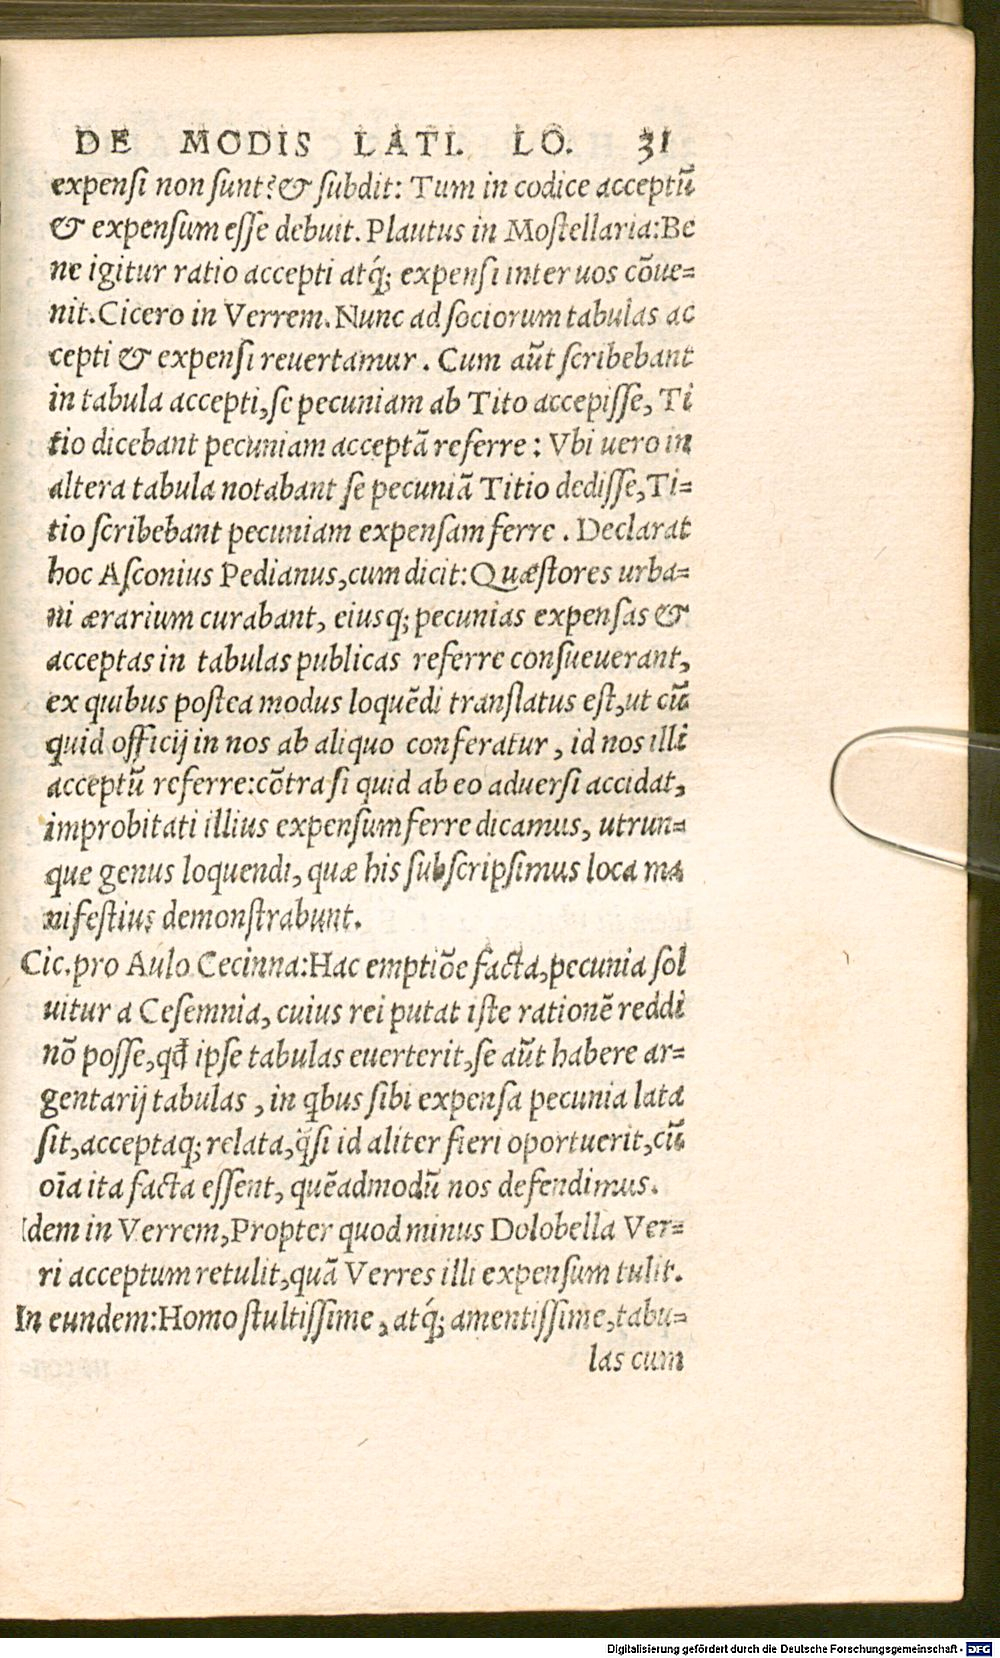 DE MODIS LATI. LO. 31
expensi non sunt? & subdit: Tum in codice acceptū
& expensum esse debuit. Plautus in Mostellaria: Be
ne igitur ratio accepti atq́; expensi inter uos cōue=
nit. Cicero in Verrem. Nunc ad sociorum tabulas ac
cepti & expensi reuertamur. Cum aūt scribebant
in tabula accepti, se pecuniam ab Tito accepisse, Ti
tio dicebant pecuniam acceptā referre: Vbi uero in
altera tabula notabant se pecuniā Titio dedisse, Ti=
tio scribebant pecuniam expensam ferre. Declarat
hoc Asconius Pedianus, cum dicit: Quæstores urba=
ni ærarium curabant, eiusq; pecunias expensas &
acceptas in tabulas publicas referre consueuerant,
ex quibus postea modus loquēdi translatus est, ut cū
quid officij in nos ab aliquo conferatur, id nos illi
acceptū referre: cōtra si quid ab eo aduersi accidat,
improbitati illius expensum ferre dicamus, utrun=
que genus loquendi, quæ his subscripsimus loca ma
nifestius demonstrabunt.
Cic. pro Aulo Cecinna: Hac emptiōe facta, pecunia sol
uitur a Cesemnia, cuius rei putat iste rationē reddi
nō posse, qđ ipse tabulas euerterit, se aūt habere ar=
gentarij tabulas, in qbus sibi expensa pecunia lata
sit, acceptaq; relata, q̄si id aliter fieri oportuerit, cū
oīa ita facta essent, quēadmodū nos defendimus.
Idem in Verrem, Propter quod minus Dolobella Ver=
ri acceptum retulit, quā Verres illi expensum tulit.
In eundem: Homo stultissime, atq́; amentissime, tabu=
las cum
Digitalisierung gefördert durch die Deutsche Forschungsgemeinschaft - DFG